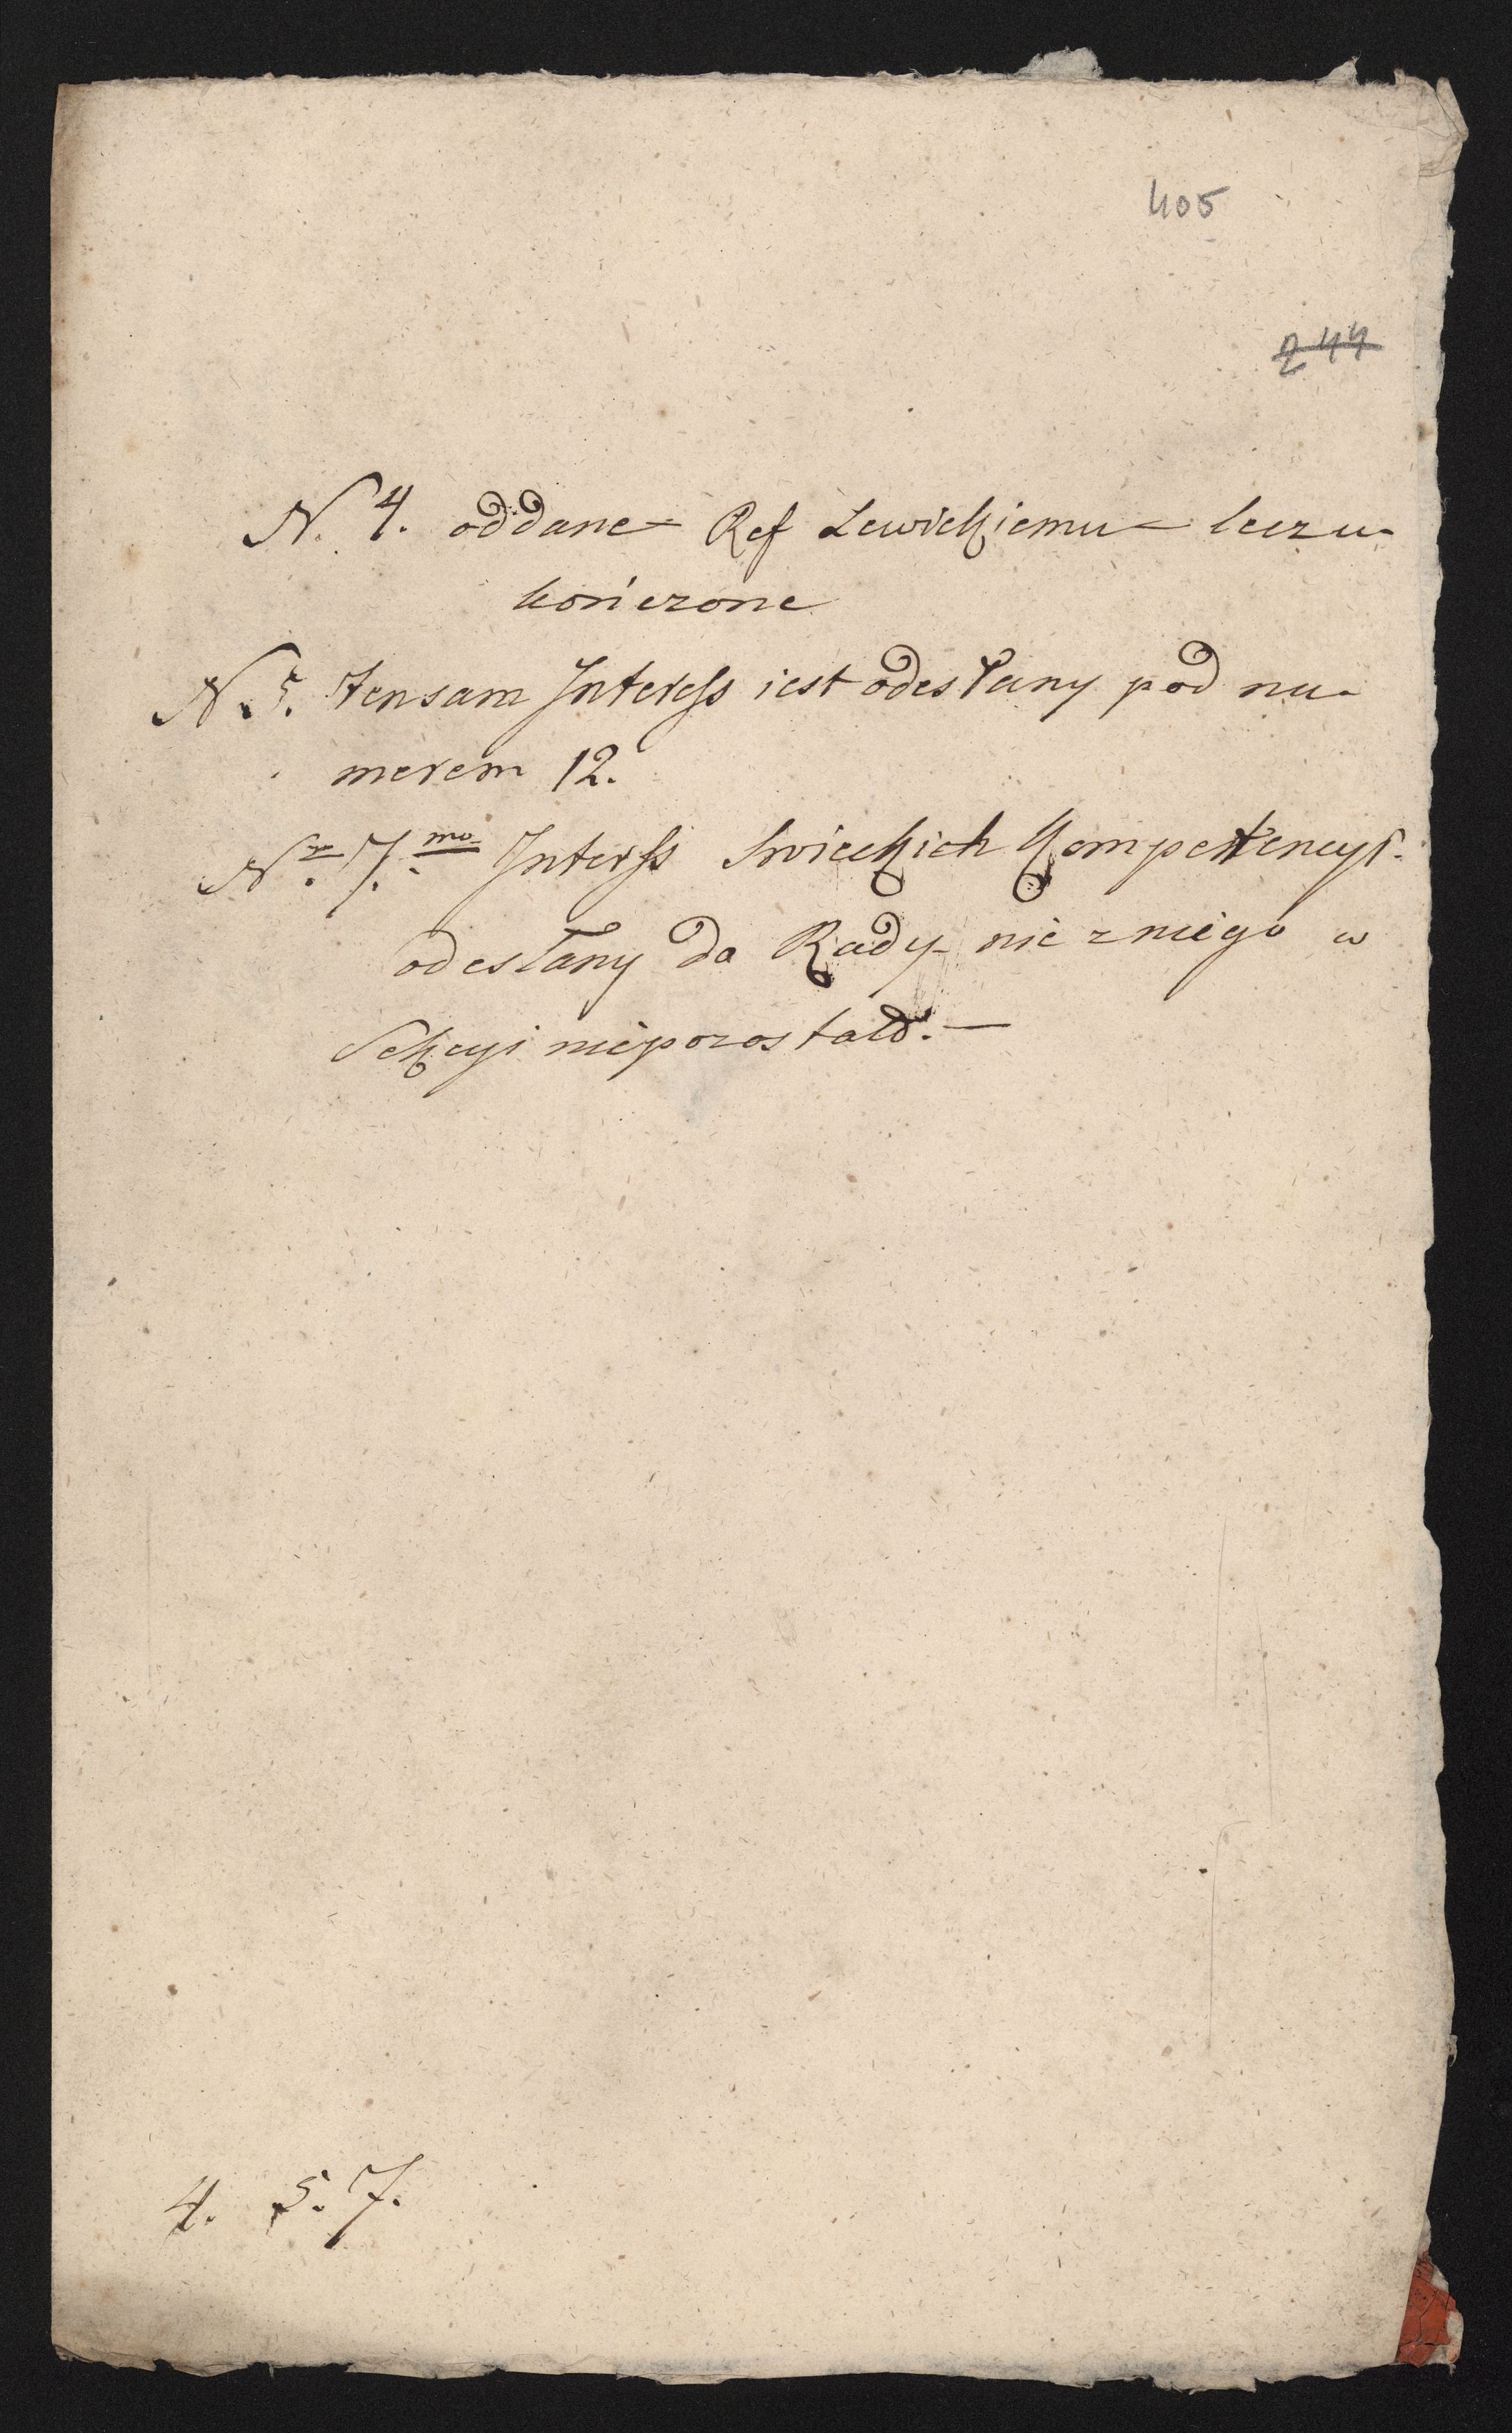 405
244
N. 4. oddane Ref Lewickiemu lecz u-
kończone
N. 5. tensam Interess iest odesłany pod nu-
merem 12.
Nr. 7.mo Interss Swieckich Kompetencyi.
odesłany do Rady nic z niego w
Sekcyi niepozostało. —
4. 5. 7.